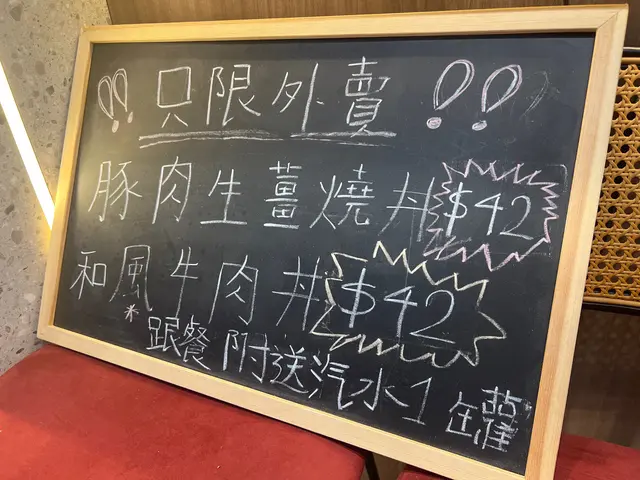 !! 只限外賣 !!
豚肉生薑燒丼 $42
和風牛肉丼 $42
*跟餐附送汽水1罐